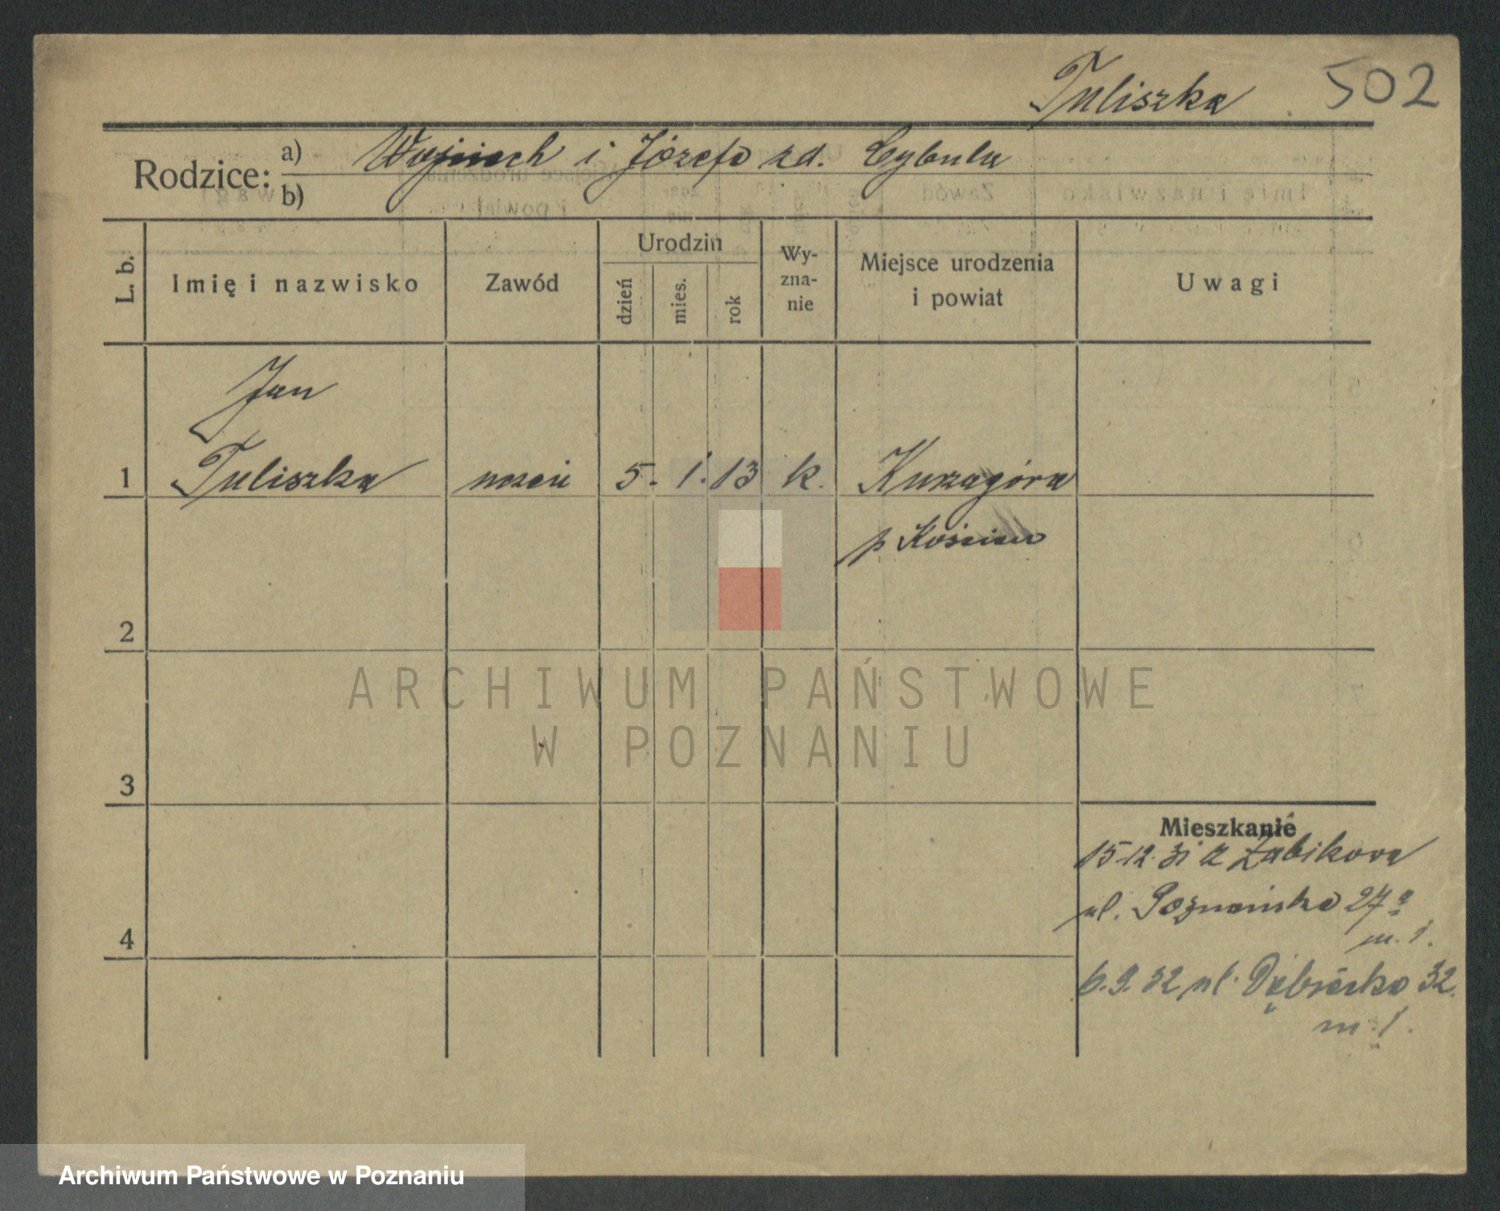 Tuliszka 502
Rodzice: a) Wojciech i Józefa zd. Cybula
b)
L. b. Imię i nazwisko Zawód Urodzin dzień mies. rok Wy-zna-nie Miejsce urodzenia i powiat Uwagi
Jan
1 Tuliszka uczeń 5. 1. 13 k. Kurzagóra
p Kościan
2
ARCHIWUM PAŃSTWOWE
W POZNANIU
3
Mieszkanie
15.12.31 z Żabikowa
ul. Poznańska 27a
m. 1.
4
6.9.32 ul. 32.
m. 1.
Archiwum Państwowe w Poznaniu